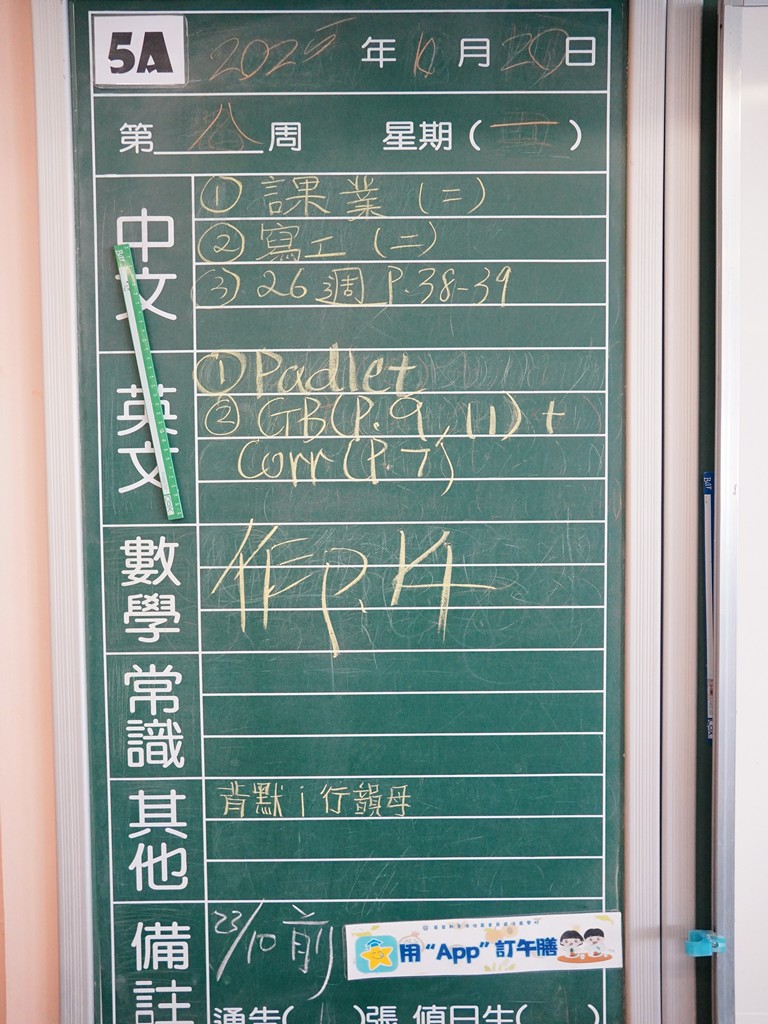 5A 2025 年 10 月 20 日
第 八 周 星期( 一 )
中文
① 課業 (二)
② 寫工 (二)
③ 26 週 P.38-39
英文
① Padlet
② GB(P.9, 11) +
Corr (P.7)
數學
作P.4
常識
其他
背默 i 行韻母
備註
23/10 前
用 “App” 訂午膳
通告( )張 值日生( )